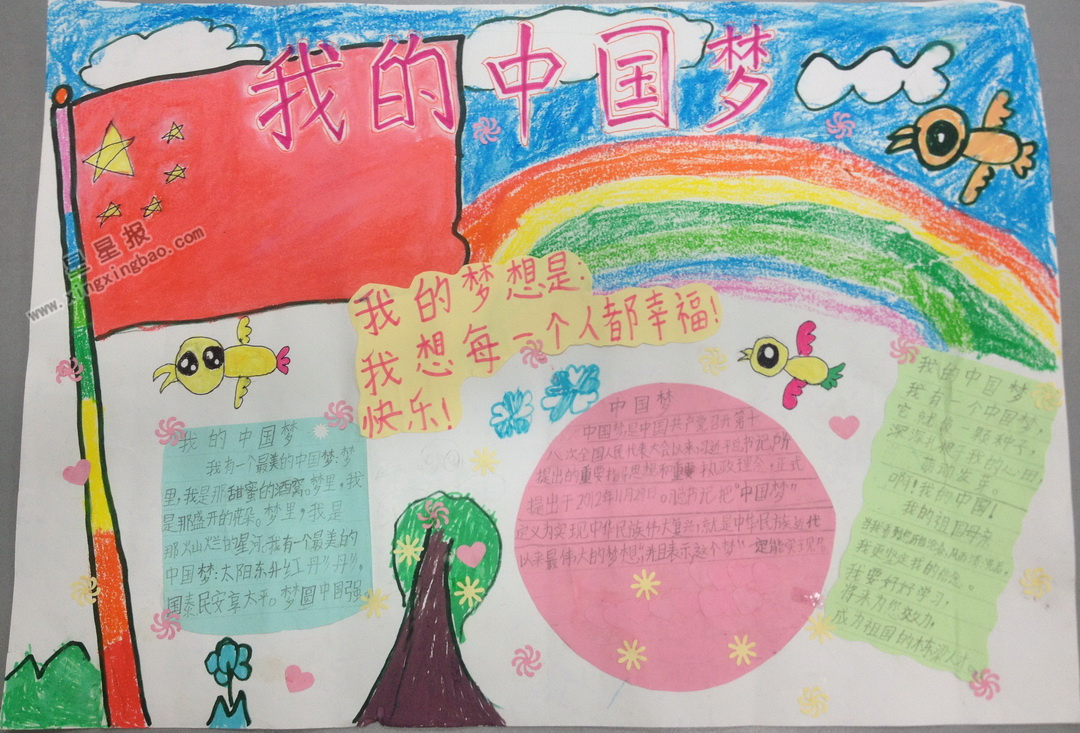 我的中国梦
星星报
www.xingxingbao.com
我的梦想是:
我想每一个人都幸福!
快乐!
我的中国梦
我有一个最美的中国梦:梦
里,我是那甜蜜的酒窝。梦里,我
是那盛开的花朵。梦里,我是
那灿烂的星河。我有一个最美的
中国梦:太阳东升红丹丹,
国泰民安享太平。梦圆中国强。
中国梦
中国梦是中国共产党召开第十
八次全国人民代表大会以来,习近平总书记所
提出的重要指导思想和重要执政理念,正式
提出于2012年11月29日。总书记把"中国梦"
定义为实现中华民族伟大复兴,就是中华民族近代
以来最伟大的梦想"并且表示这个梦"一定能实现"。
我的中国梦
我有一个中国梦,
它就像一颗种子,
深深扎根我的心田
萌动发芽。
啊!我的中国!
我的祖国母亲
我更坚定我的信念。
我要好好学习,
将来为您效力,
成为祖国的栋梁人才。